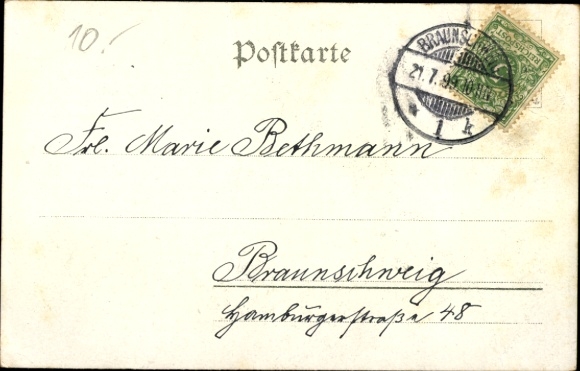 10.-
Postkarte
BRAUNSCHWEIG
21.7.99.10-11V.
* 1 k
Frl. Marie Bethmann
Braunschweig
Hamburgerstraße 48